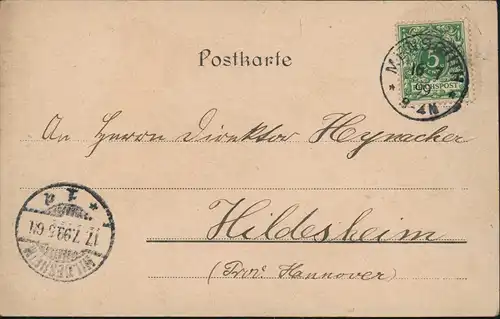 Postkarte
5
REICHSPOST
16 7
99
An Herrn Direktor Heynacher
Hildesheim
(Prov. Hannover)
HILDESHEIM